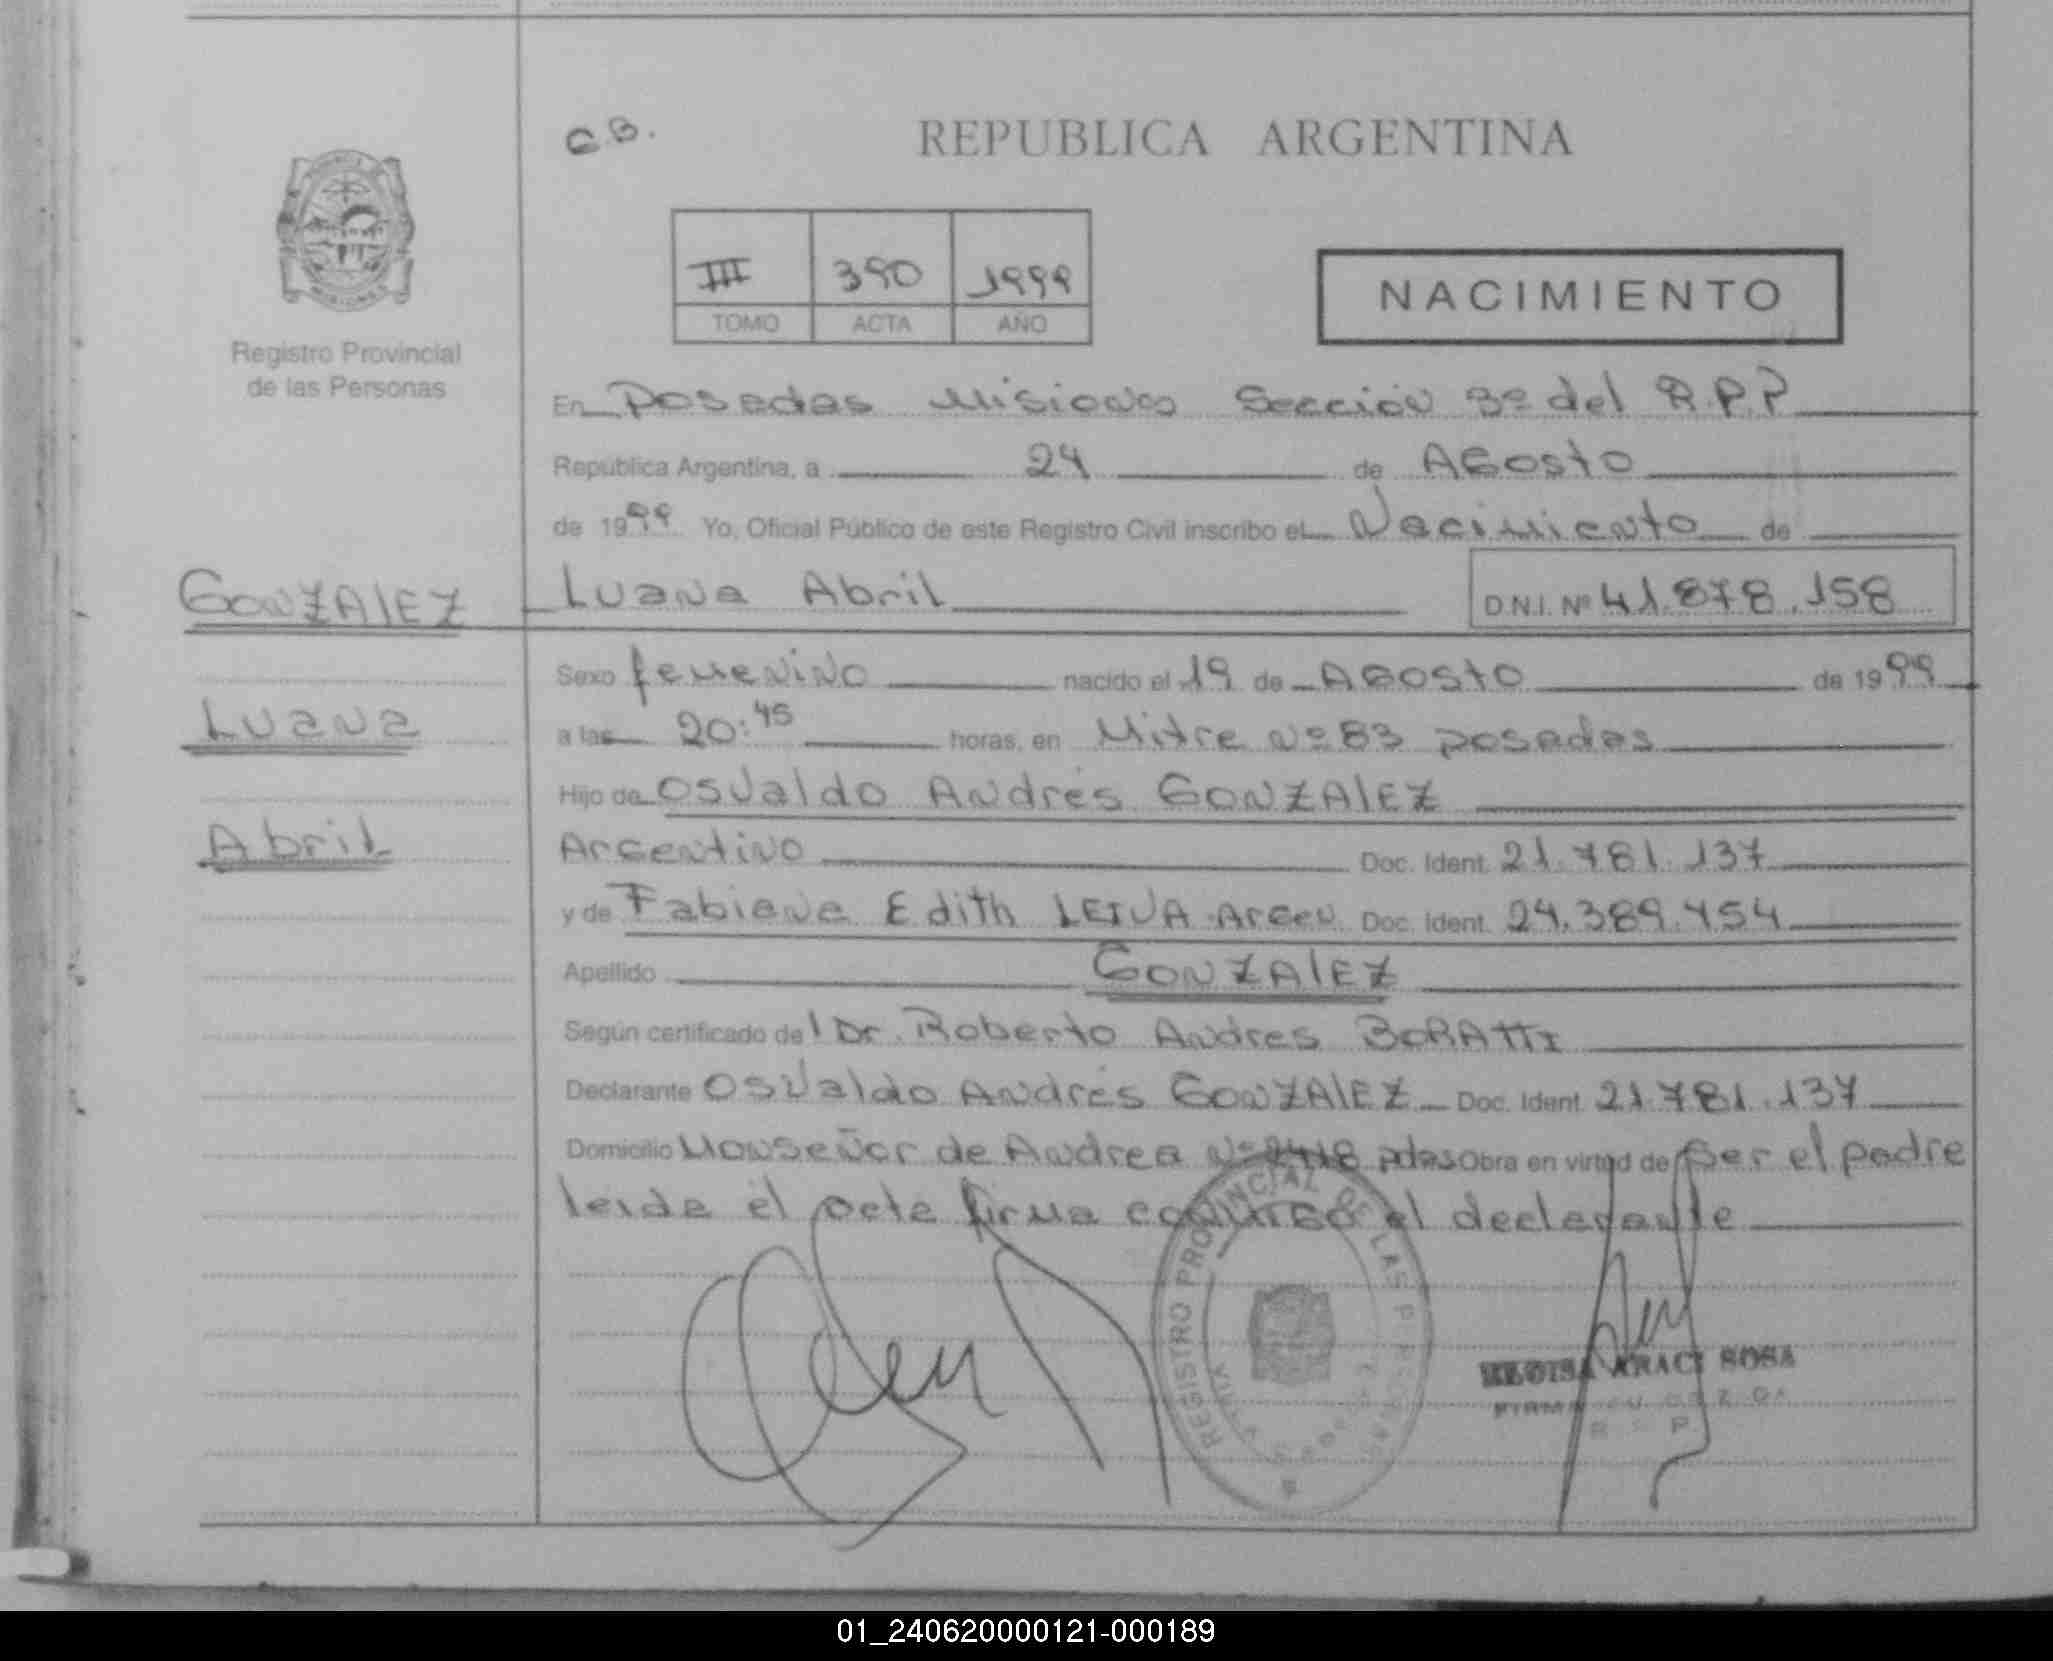 C.B.
REPUBLICA ARGENTINA
III 390 1999
TOMO ACTA AÑO
NACIMIENTO
MISIONES
Registro Provincial
de las Personas
En Posadas Misiones Sección 3º del R.P.P
República Argentina, a 24 de Agosto
de 1999 Yo, Oficial Público de este Registro Civil inscribo el Nacimiento de
GONZALEZ Luana Abril D.N.I. Nº 41.878.158
Sexo femenino nacido el 19 de Agosto de 1999
Luana
a las 20:45 horas, en Mitre Nº 83 posadas
Hijo de Osvaldo Andrés GONZALEZ
Abril
Argentino Doc. Ident. 21.781.137
y de Fabiana Edith LEIVA Argen. Doc. Ident. 24.389.454
Apellido GONZALEZ
Según certificado del Dr. Roberto Andres BORATTI
Declarante Osvaldo Andrés GONZALEZ Doc. Ident. 21.781.137
Domicilio Monseñor de Andrea Nº 2418 pdas Obra en virtud de ser el padre
leida el acta firma conmigo el declarante
REGISTRO PROVINCIAL DE LAS PERSONAS
ARACI SOSA
01_240620000121-000189